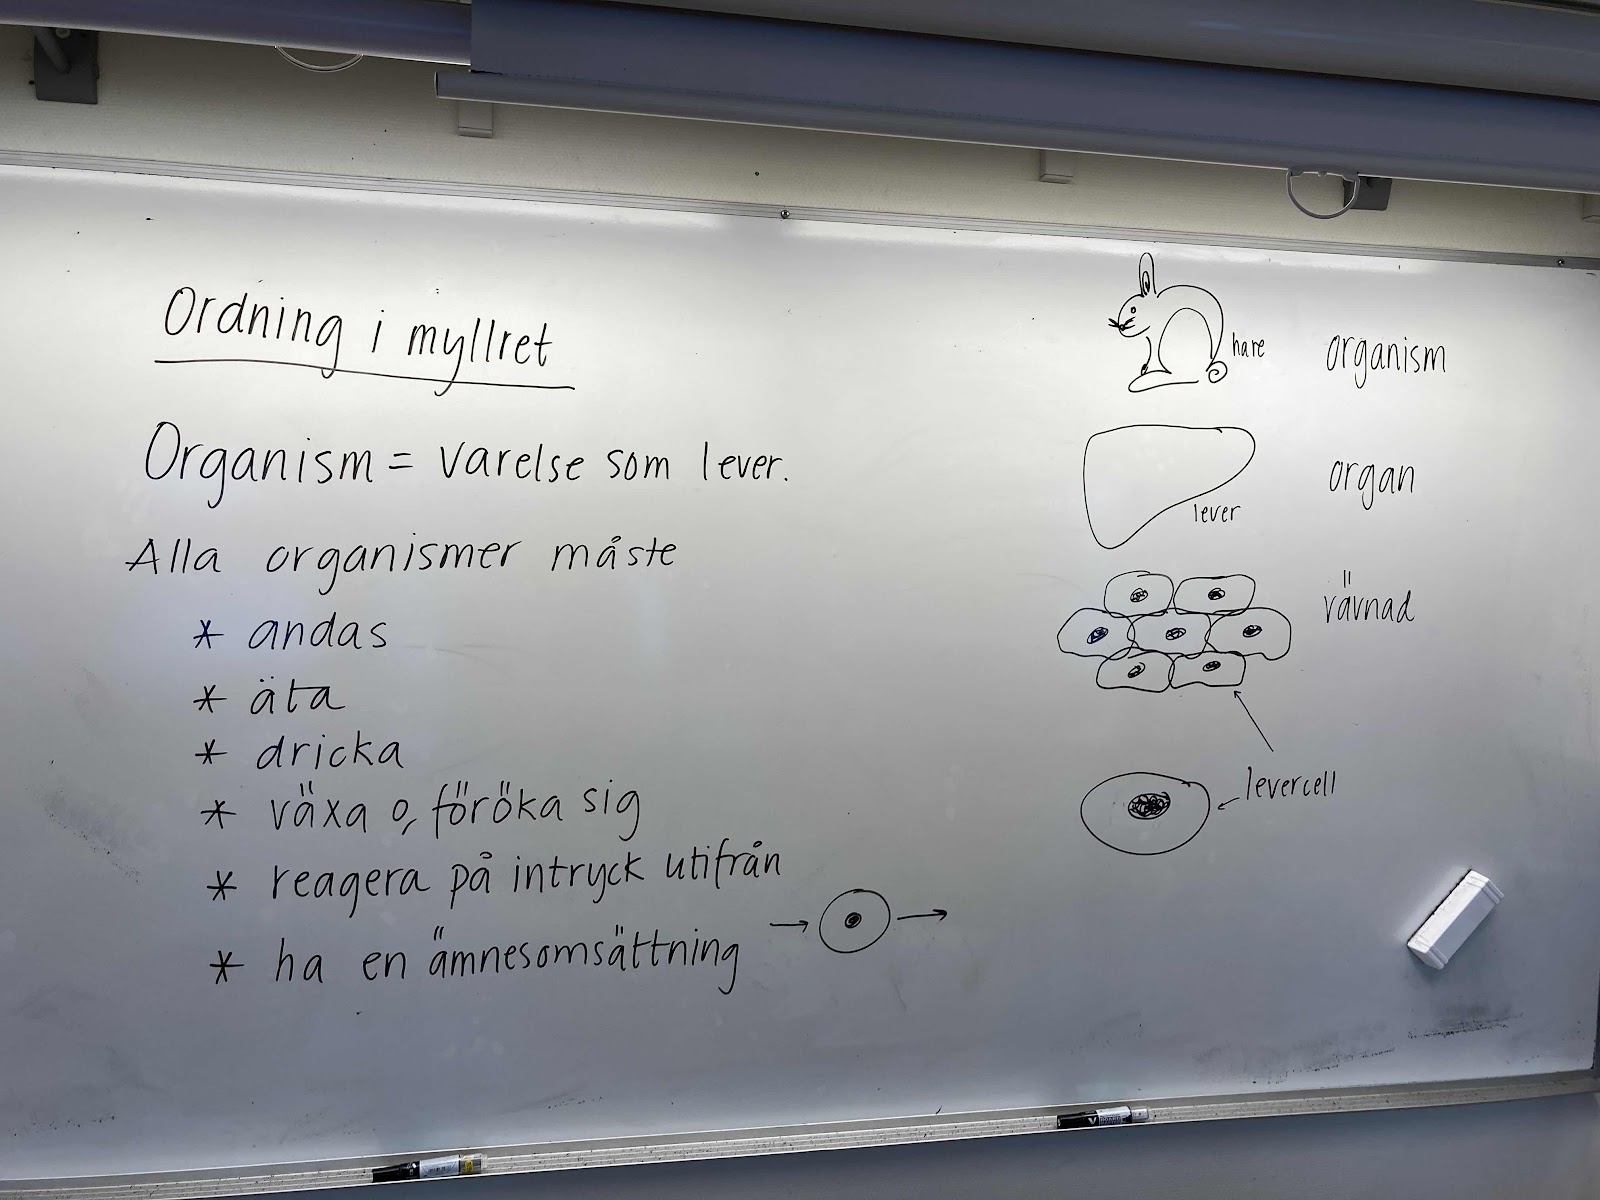 Ordning i myllret
Organism = varelse som lever.
Alla organismer måste
* andas
* äta
* dricka
* växa o, föröka sig
* reagera på intryck utifrån
* ha en ämnesomsättning
hare organism
lever organ
vävnad
levercell